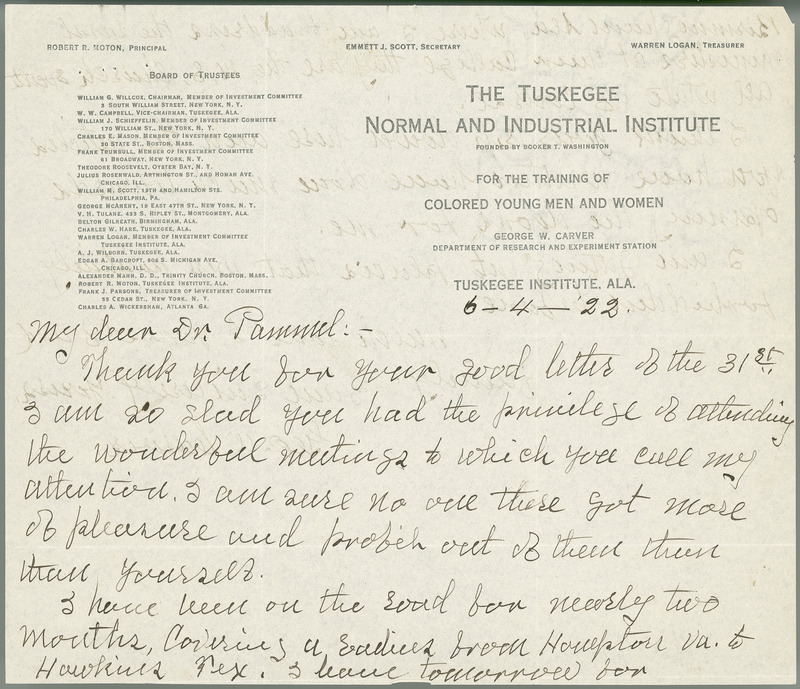 ROBERT R. MOTON, PRINCIPAL
EMMETT J. SCOTT, SECRETARY
WARREN LOGAN, TREASURER
BOARD OF TRUSTEES
WILLIAM G. WILLCOX, CHAIRMAN, MEMBER OF INVESTMENT COMMITTEE
3 SOUTH WILLIAM STREET, NEW YORK, N. Y.
W. W. CAMPBELL, VICE-CHAIRMAN, TUSKEGEE, ALA.
WILLIAM J. SCHIEFFLIN, MEMBER OF INVESTMENT COMMITTEE
170 WILLIAM ST., NEW YORK, N. Y.
CHARLES E. MASON, MEMBER OF INVESTMENT COMMITTEE
30 STATE ST., BOSTON, MASS.
FRANK TRUMBULL, MEMBER OF INVESTMENT COMMITTEE
61 BROADWAY, NEW YORK, N. Y.
THEODORE ROOSEVELT, OYSTER BAY, N. Y.
JULIUS ROSENWALD, ARTHINGTON ST., AND HOMAN AVE.
CHICAGO, ILL.
WILLIAM M. SCOTT, 13TH AND HAMILTON STS.
PHILADELPHIA, PA.
GEORGE MCANENY, 19 EAST 47TH ST., NEW YORK, N. Y.
V. H. TULANE, 433 S. RIPLEY ST., MONTGOMERY, ALA.
BELTON GILREATH, BIRMINGHAM, ALA.
CHARLES W. HARE, TUSKEGEE, ALA.
WARREN LOGAN, MEMBER OF INVESTMENT COMMITTEE
TUSKEGEE INSTITUTE, ALA.
A. J. WILBORN, TUSKEGEE, ALA.
EDGAR A. BANCROFT, 606 S. MICHIGAN AVE.
CHICAGO, ILL.
ALEXANDER MANN, D. D., TRINITY CHURCH, BOSTON, MASS.
ROBERT R. MOTON, TUSKEGEE INSTITUTE, ALA.
FRANK J. PARSONS, TREASURER OF INVESTMENT COMMITTEE
55 CEDAR ST., NEW YORK, N. Y.
CHARLES A. WICKERSHAM, ATLANTA GA.
THE TUSKEGEE
NORMAL AND INDUSTRIAL INSTITUTE
FOUNDED BY BOOKER T. WASHINGTON
FOR THE TRAINING OF
COLORED YOUNG MEN AND WOMEN
GEORGE W. CARVER
DEPARTMENT OF RESEARCH AND EXPERIMENT STATION
TUSKEGEE INSTITUTE, ALA.
6-4-'22.
My dear Dr. Pammel:-
Thank you for your good letter of the 31st.
I am so glad you had the privilege of attending
the wonderful meetings to which you call my
attention. I am sure no one there got more
of pleasure and profit out of them then
than yourself.
I have been on the road for nearly two
months, Covering a radius from Hampton Va. to
Hawkins Tex. I leave tomorrow for